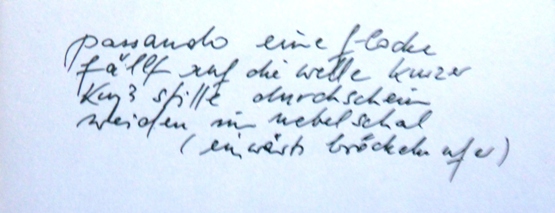 passando eine flocke
fällt auf die welle kurzer
kuß stille durchschein
weiden im nebelschal
(einwärts bröckeln ufer)